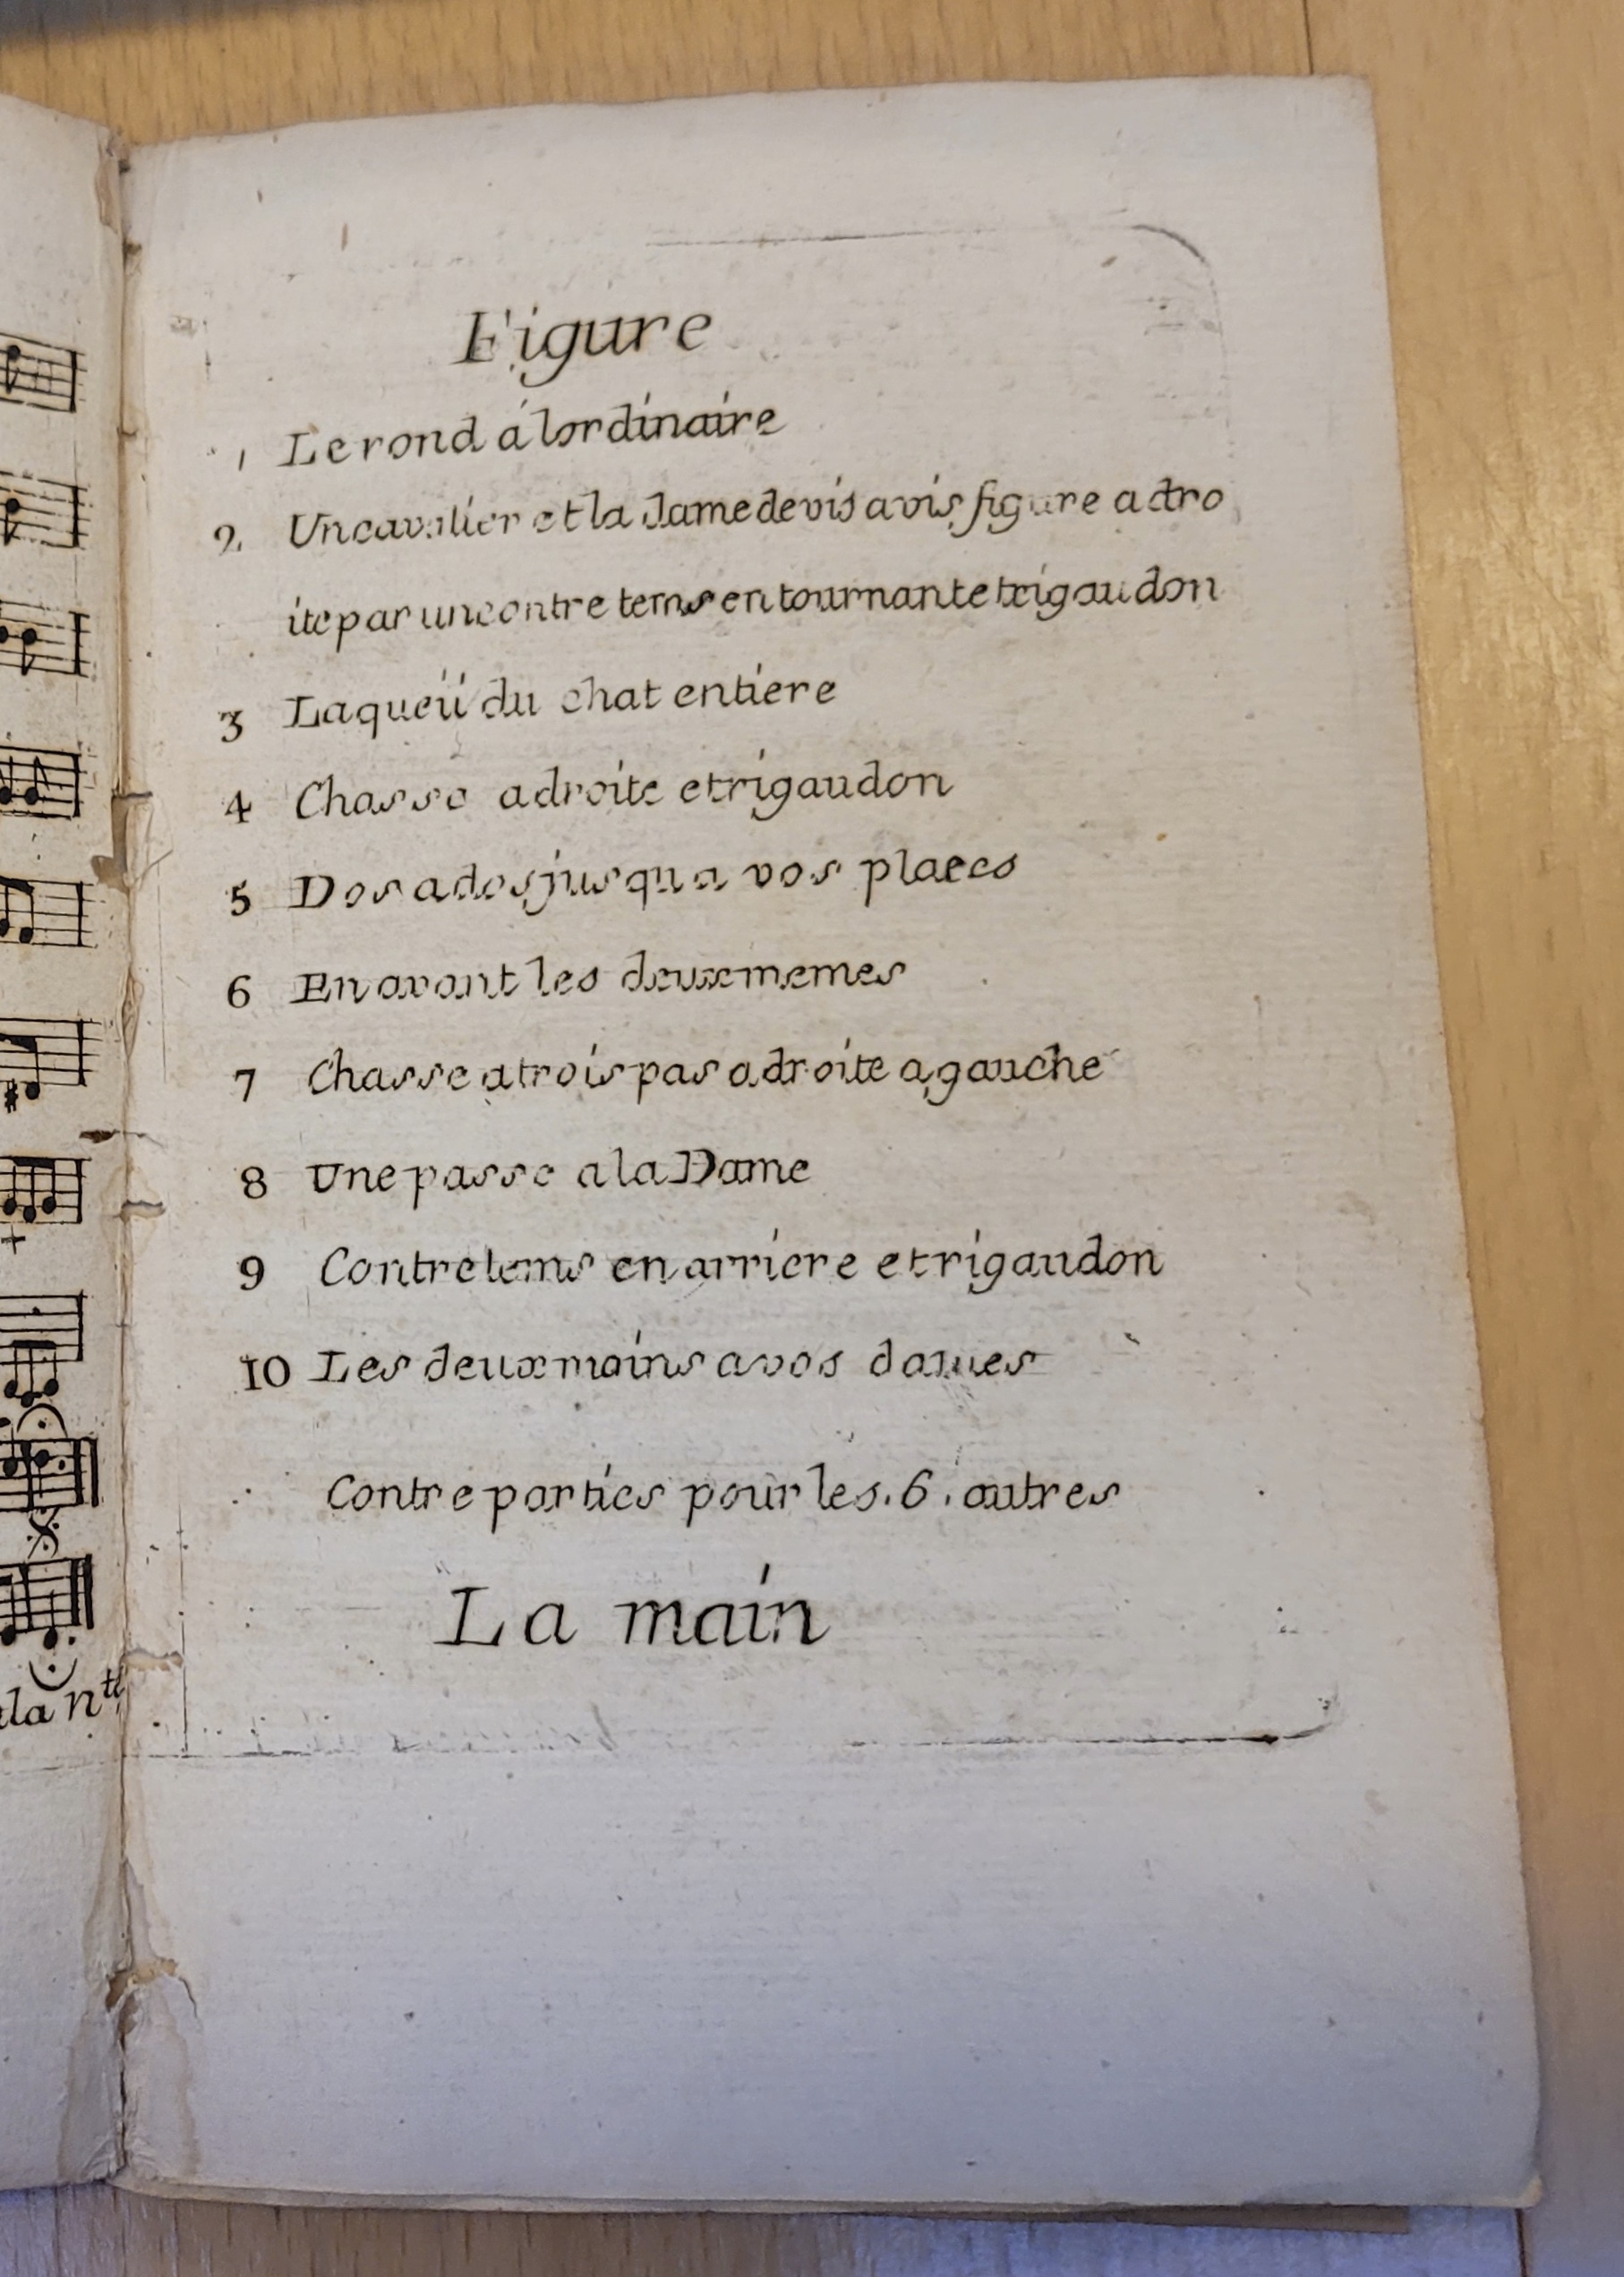 Figure
1 Le rond á lordinaire
2. Un cavalier et la Dame de vis a vis figure a dro
ite par un contre tems en tournant et rigaudon
3 La queüi du chat entiere
4 Chasse a droite et rigaudon
5 Dos a dos jusqu a vos places
6 En avant les deux memes
7 Chasse a trois pas a droite a gauche
8 Une passe a la Dame
9 Contretems en arriere et rigaudon
10 Les deux mains a vos dames
Contre parties pour les . 6 . autres
La main
ala nte